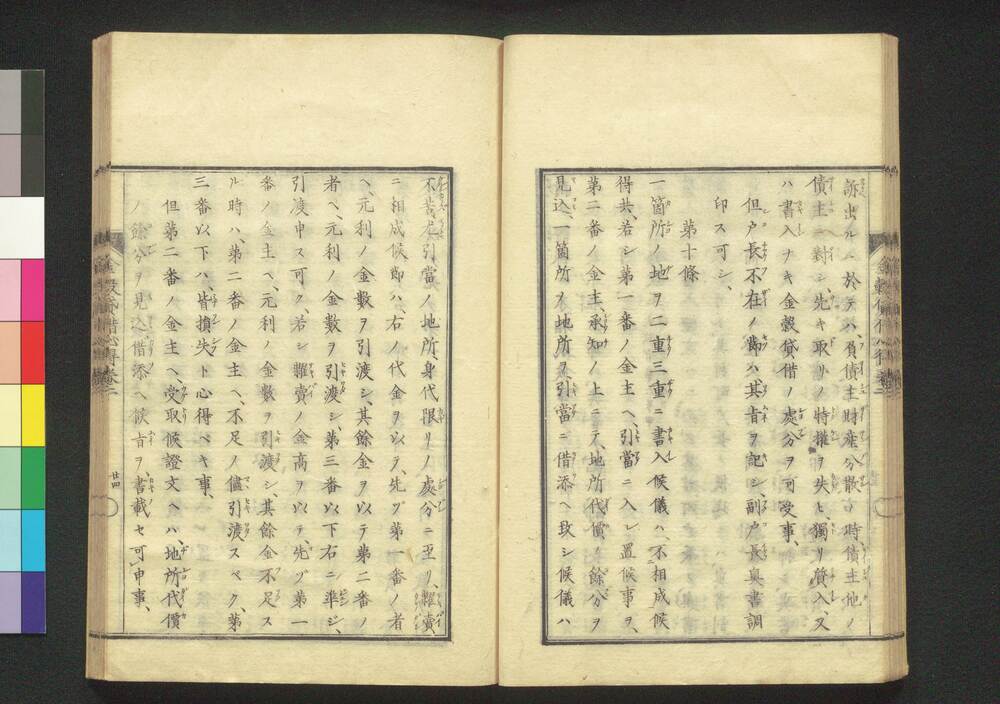 訴出ルニ於テハ、負債主財産分散ノ時債主他ノ
債主ニ對シ、先キ取リノ特權ヲ失ヒ獨リ質入、又
ハ書入ナキ金穀貸借ノ處分ヲ可受事、
但戸長不在ノ節ハ其旨ヲ記シ、副戸長奥書調
印ス可シ、
第十條
一箇所ノ地ヲ二重三重ニ書入候儀ハ、不相成候
得共、若シ第一番ノ金主ヘ、引當ニ入レ置候事ヲ、
第二番ノ金主、承知ノ上ニテ、地所代價ノ餘分ヲ
見込、一箇所ノ地所ヲ引當ニ借添ヘ致シ候儀ハ
金穀貸借心得巻二
不苦尤引當ノ地所身代限リノ處分ニ至リ、糶賣
ニ相成候節ハ、右ノ代金ヲ以テ、先ヅ第一番ノ者
ヘ、元利ノ金數ヲ引渡シ、其餘金ヲ以テ第二番ノ
者ヘ、元利ノ金數ヲ引渡シ、第三番以下右ニ準シ、
引渡申ス可ク、若シ糶賣ノ金高ヲ以テ、先ヅ第一
番ノ金主ヘ、元利ノ金數ヲ引渡シ、其餘金不足ス
ル時ハ、第二番ノ金主ヘ、不足ノ儘引渡スベク、第
三番以下ハ、皆損失ト心得ベキ事、
但第二番ノ金主ヘ、受取候證文ヘハ、地所代價
ノ餘分ヲ見込、借添ヘ候旨ヲ、書載セ可申事、
金穀貸借心得巻二
廿四